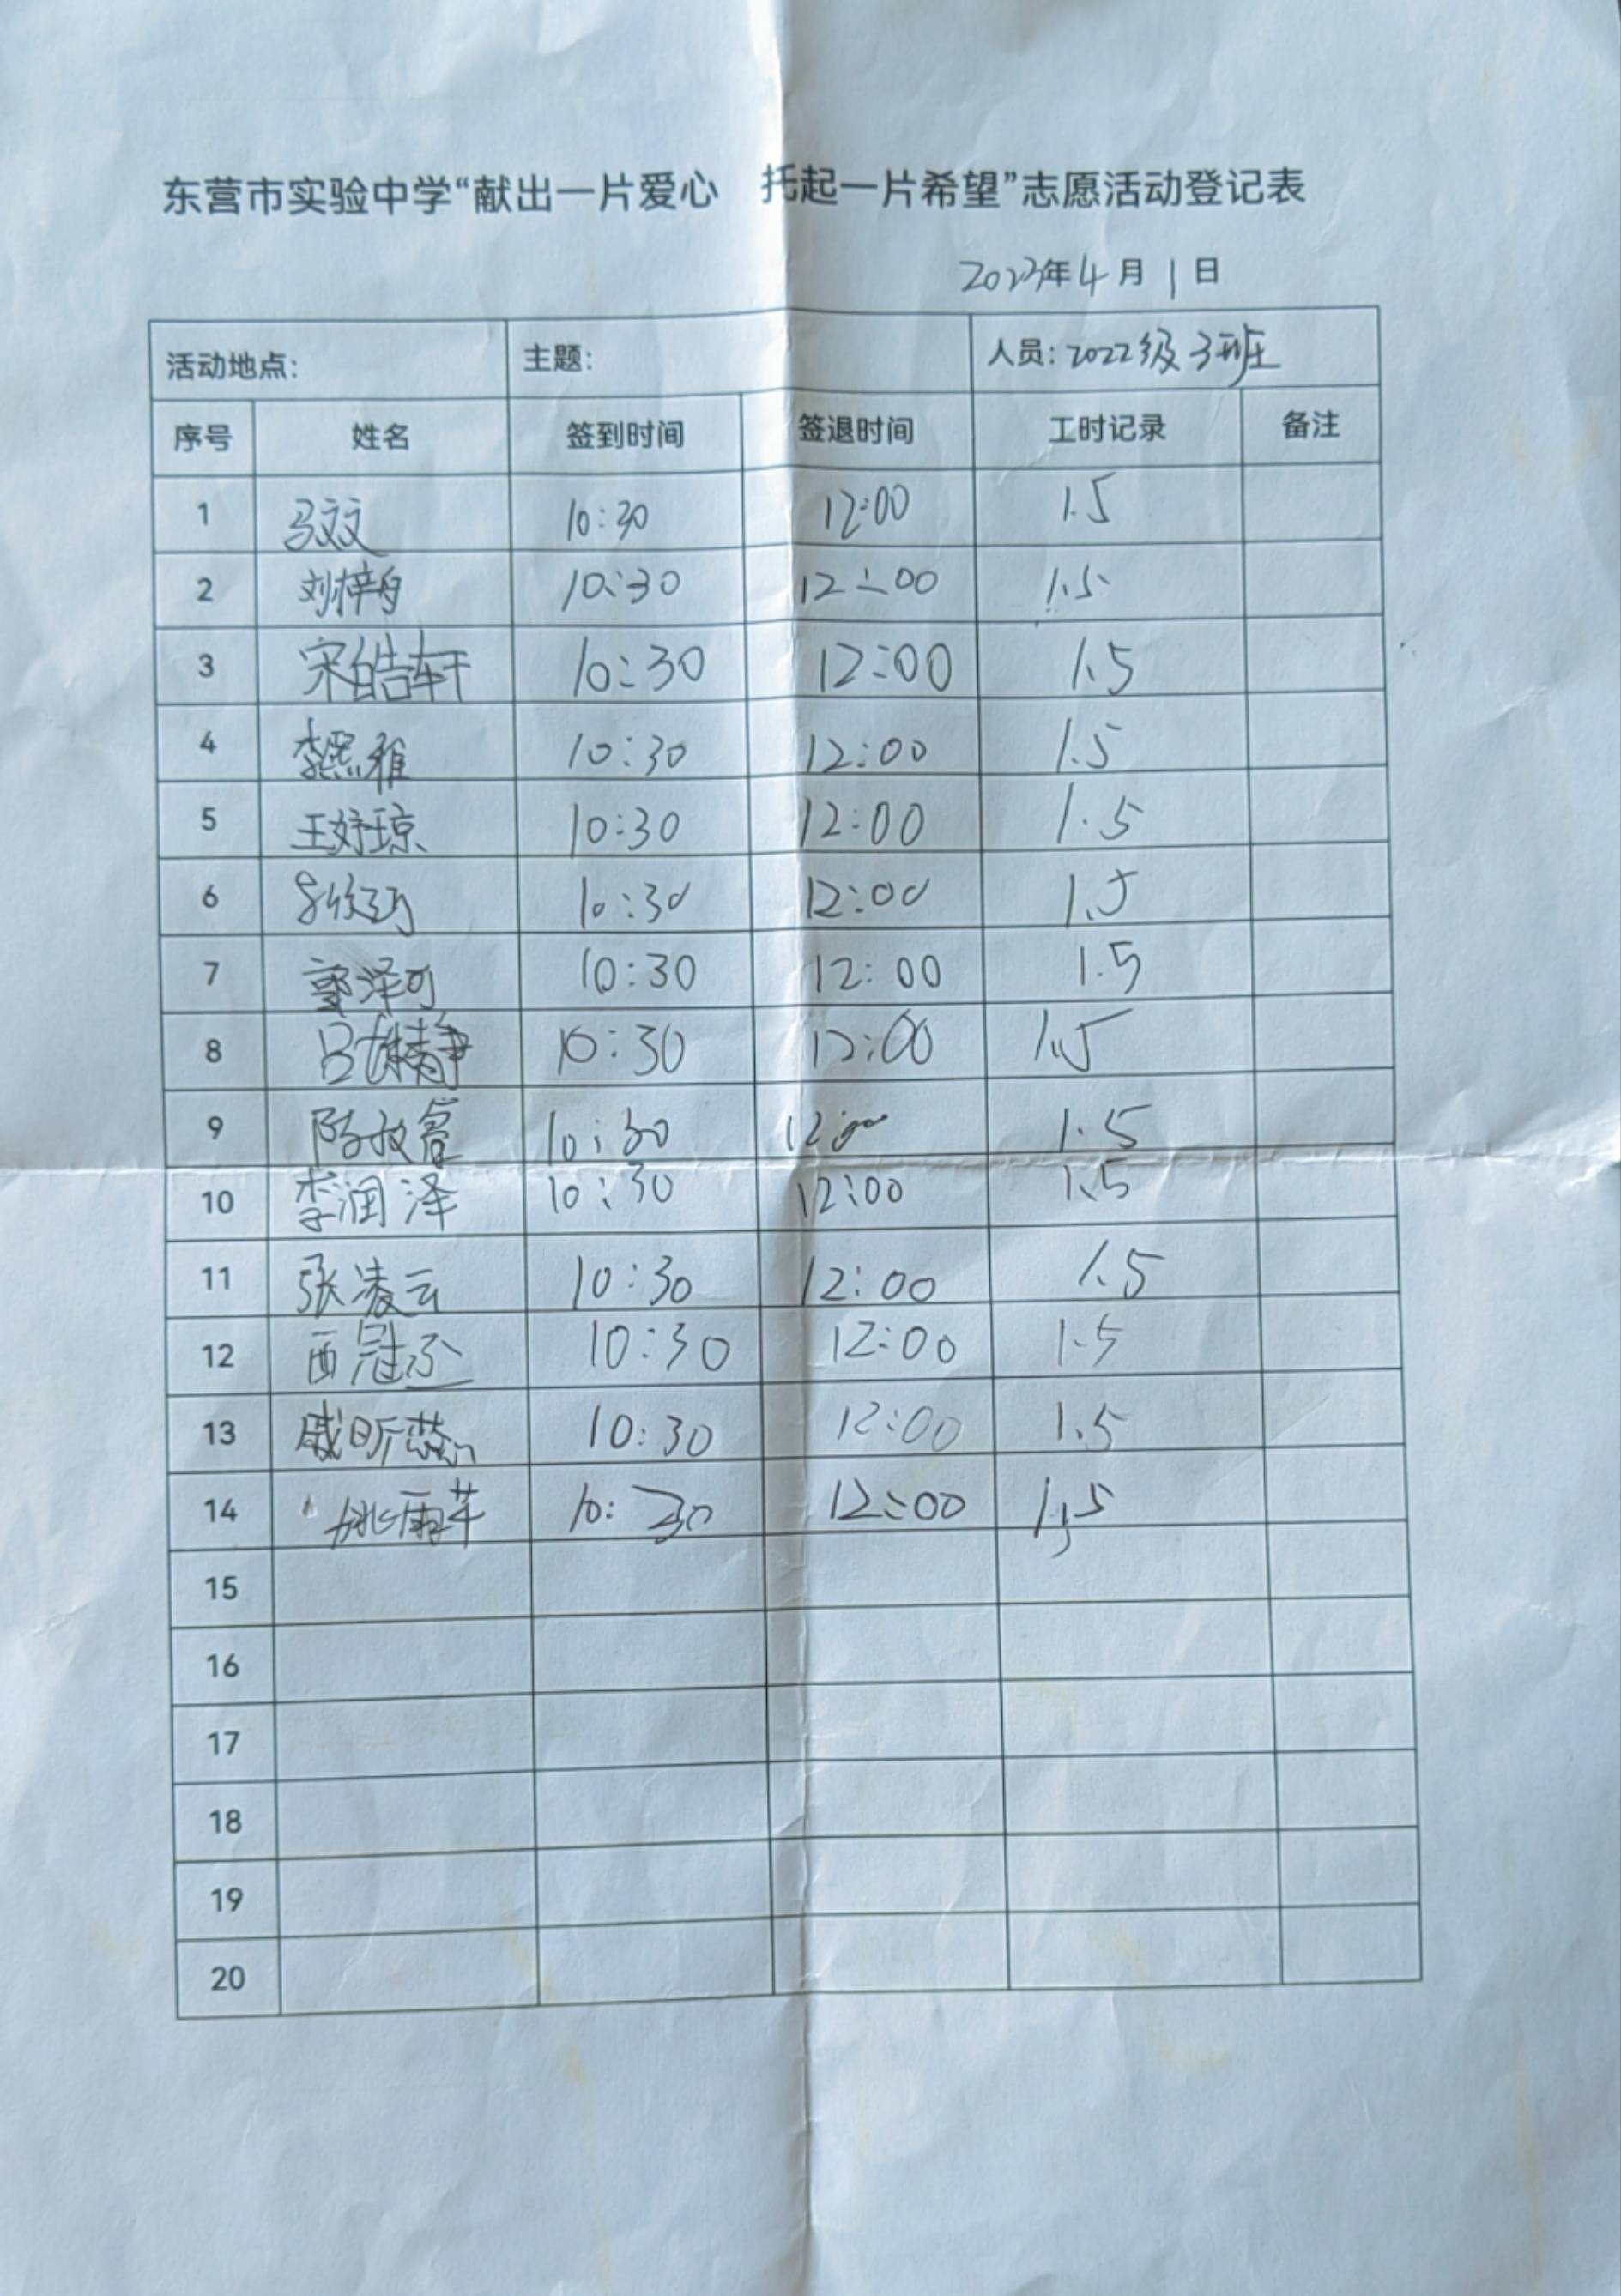 东营市实验中学“献出一片爱心 托起一片希望”志愿活动登记表
2023年4月1日
活动地点: 主题: 人员: 2022级3班
序号 姓名 签到时间 签退时间 工时记录 备注
1 马文文 10:30 12:00 1.5
2 刘梓舟 10:30 12:00 1.5
3 宋皓轩 10:30 12:00 1.5
4 李熙雅 10:30 12:00 1.5
5 王妤琼 10:30 12:00 1.5
6 10:30 12:00 1.5
7 郭泽可 10:30 12:00 1.5
8 10:30 12:00 1.5
9 10:30 12:00 1.5
10 李润泽 10:30 12:00 1.5
11 张凌云 10:30 12:00 1.5
12 西冠丞 10:30 12:00 1.5
13 戚昕蕊 10:30 12:00 1.5
14 姚雨芊 10:30 12:00 1.5
15
16
17
18
19
20